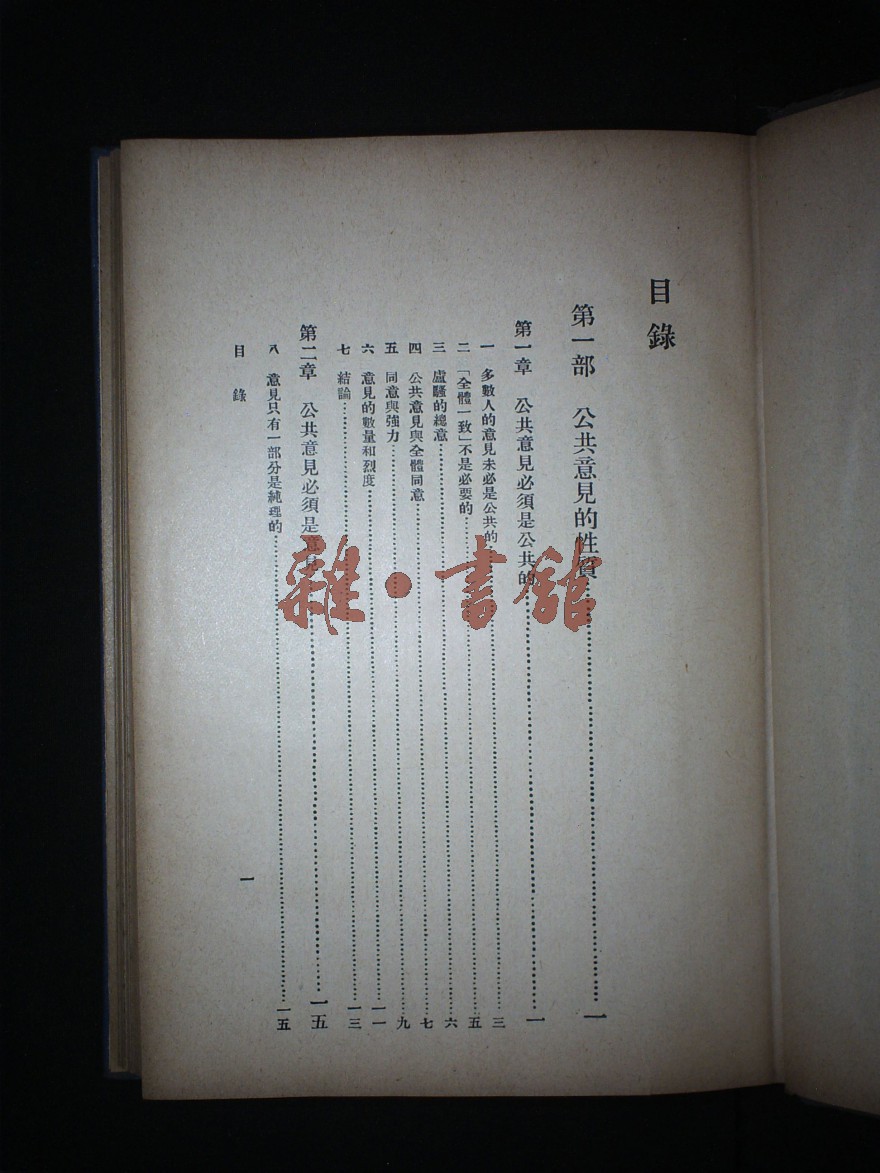 目錄
第一部 公共意見的性質……一
第一章 公共意見必須是公共的……一
一 多數人的意見未必是公共的……三
二 「全體一致」不是必要的……五
三 盧騷的總意……六
四 公共意見與全體同意……七
五 同意與強力……九
六 意見的數量和烈度……一一
七 結論……一三
第二章 公共意見必須是意見……一五
八 意見只有一部分是純理的……一五
目錄
一
雜·書館